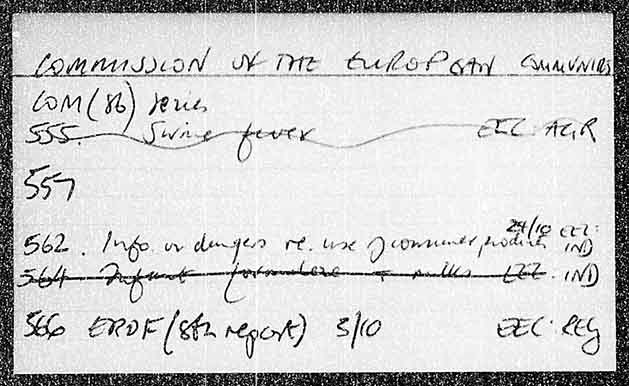 COMMISSION OF THE EUROPEAN COMMUNITIES
COM(86) series
555. Swine fever EEC AGR
557
562. Info. on dangers re. use of consumer products 24/10 EEC: IND
564 Infant formulae + milks EEC. IND
566 ERDF (8th report) 3/10 EEC: REG